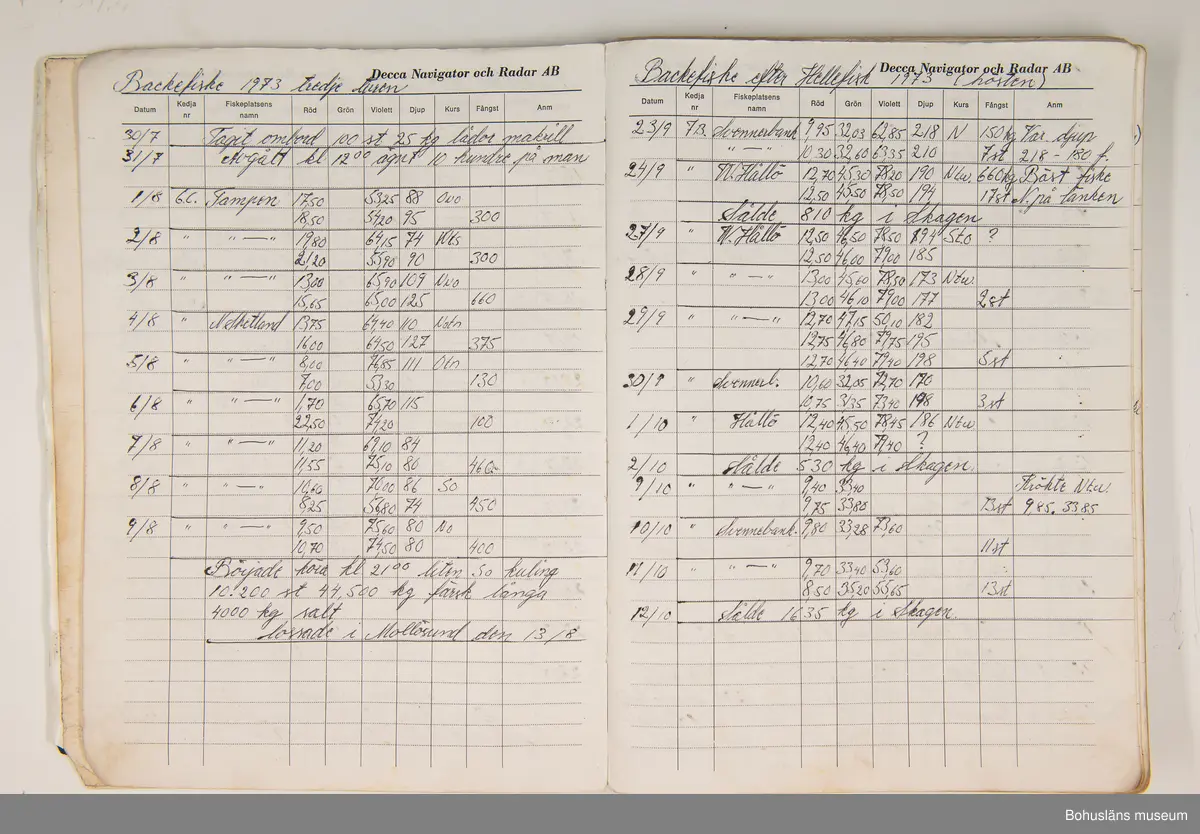 Decca Navigator och Radar AB
Backefiske 1973 tredje turen
Datum Kedja nr Fiskeplatsens namn Röd Grön Violett Djup Kurs Fångst Anm
30/7 Tagit ombord 100 st 25 kg lådor makrill
31/7 Avgått kl 12 00 ägnt 10 hundre på man
1/8 6.C. Tampen 17,50 53,25 88 Ovo
18,50 54,20 95 300
2/8 " " — " 19,80 64,15 74
21,20 55,90 90 300
3/8 " " — " 13,00 65,90 109 Nvo
15,65 65,00 125 660
4/8 " 13,75 64,40 110
16,00 64,50 127 375
5/8 " " — " 8,00 76,85 111 Otn
7,00 53,30 130
6/8 " " — " 1,70 65,70 115
22,50 74,20 100
7/8 " " — " 11,20 69,10 84
11,55 75,10 80 460
8/8 " " — " 10,60 70,00 86 So
8,25 56,80 74 450
9/8 " " — " 9,50 75,60 80 No
10,70 74,50 80 400
Började kl 21 00 liten So kuling
10.200 st 44,500 kg färsk långa
4000 kg salt
lossade i Mollösund den 13/8
Decca Navigator och Radar AB
Backefiske efter Hellefisk 1973 (hösten)
Datum Kedja nr Fiskeplatsens namn Röd Grön Violett Djup Kurs Fångst Anm
23/9 7B. Svennerbank 9,95 32,03 62,85 218 N 150 kg Var. djup
" — " 10,30 32,60 63,35 210 7st 218 - 180 f.
24/9 " N. Hållö 12,70 45,30 78,20 190 Ntw. 660 kg Bäst fiske
12,50 45,50 78,50 194 17st N. på länken
Sålde 810 kg i Skagen
27/9 " N. Hållö 12,50 46,50 78,50 194 Sto ?
12,50 46,00 79,00 185
28/9 " " — " 13,00 45,60 78,50 173 Ntw.
13,00 46,10 79,00 177 2st
29/9 " " — " 12,70 47,15 50,10 182
12,75 46,80 79,75 195
12,70 46,40 79,40 198 5st
30/9 " Svennerb. 10,60 32,05 72,70 170
10,75 31,35 73,40 198 3st
1/10 " Hållö 12,40 45,50 78,45 186 Ntw
12,40 46,40 79,40 ?
2/10 Sålde 530 kg i Skagen.
9/10 " " — " 9,40 33,40 Krökte Ntw
9,75 33,80 13st 9 85. 33 85
10/10 " Svennebank. 9,80 33,28 73,60
11st
11/10 " — " 9,70 33,40 53,60
8,50 35,20 55,65 13st
12/10 Sålde 1635 kg i Skagen.
Bohusläns museum